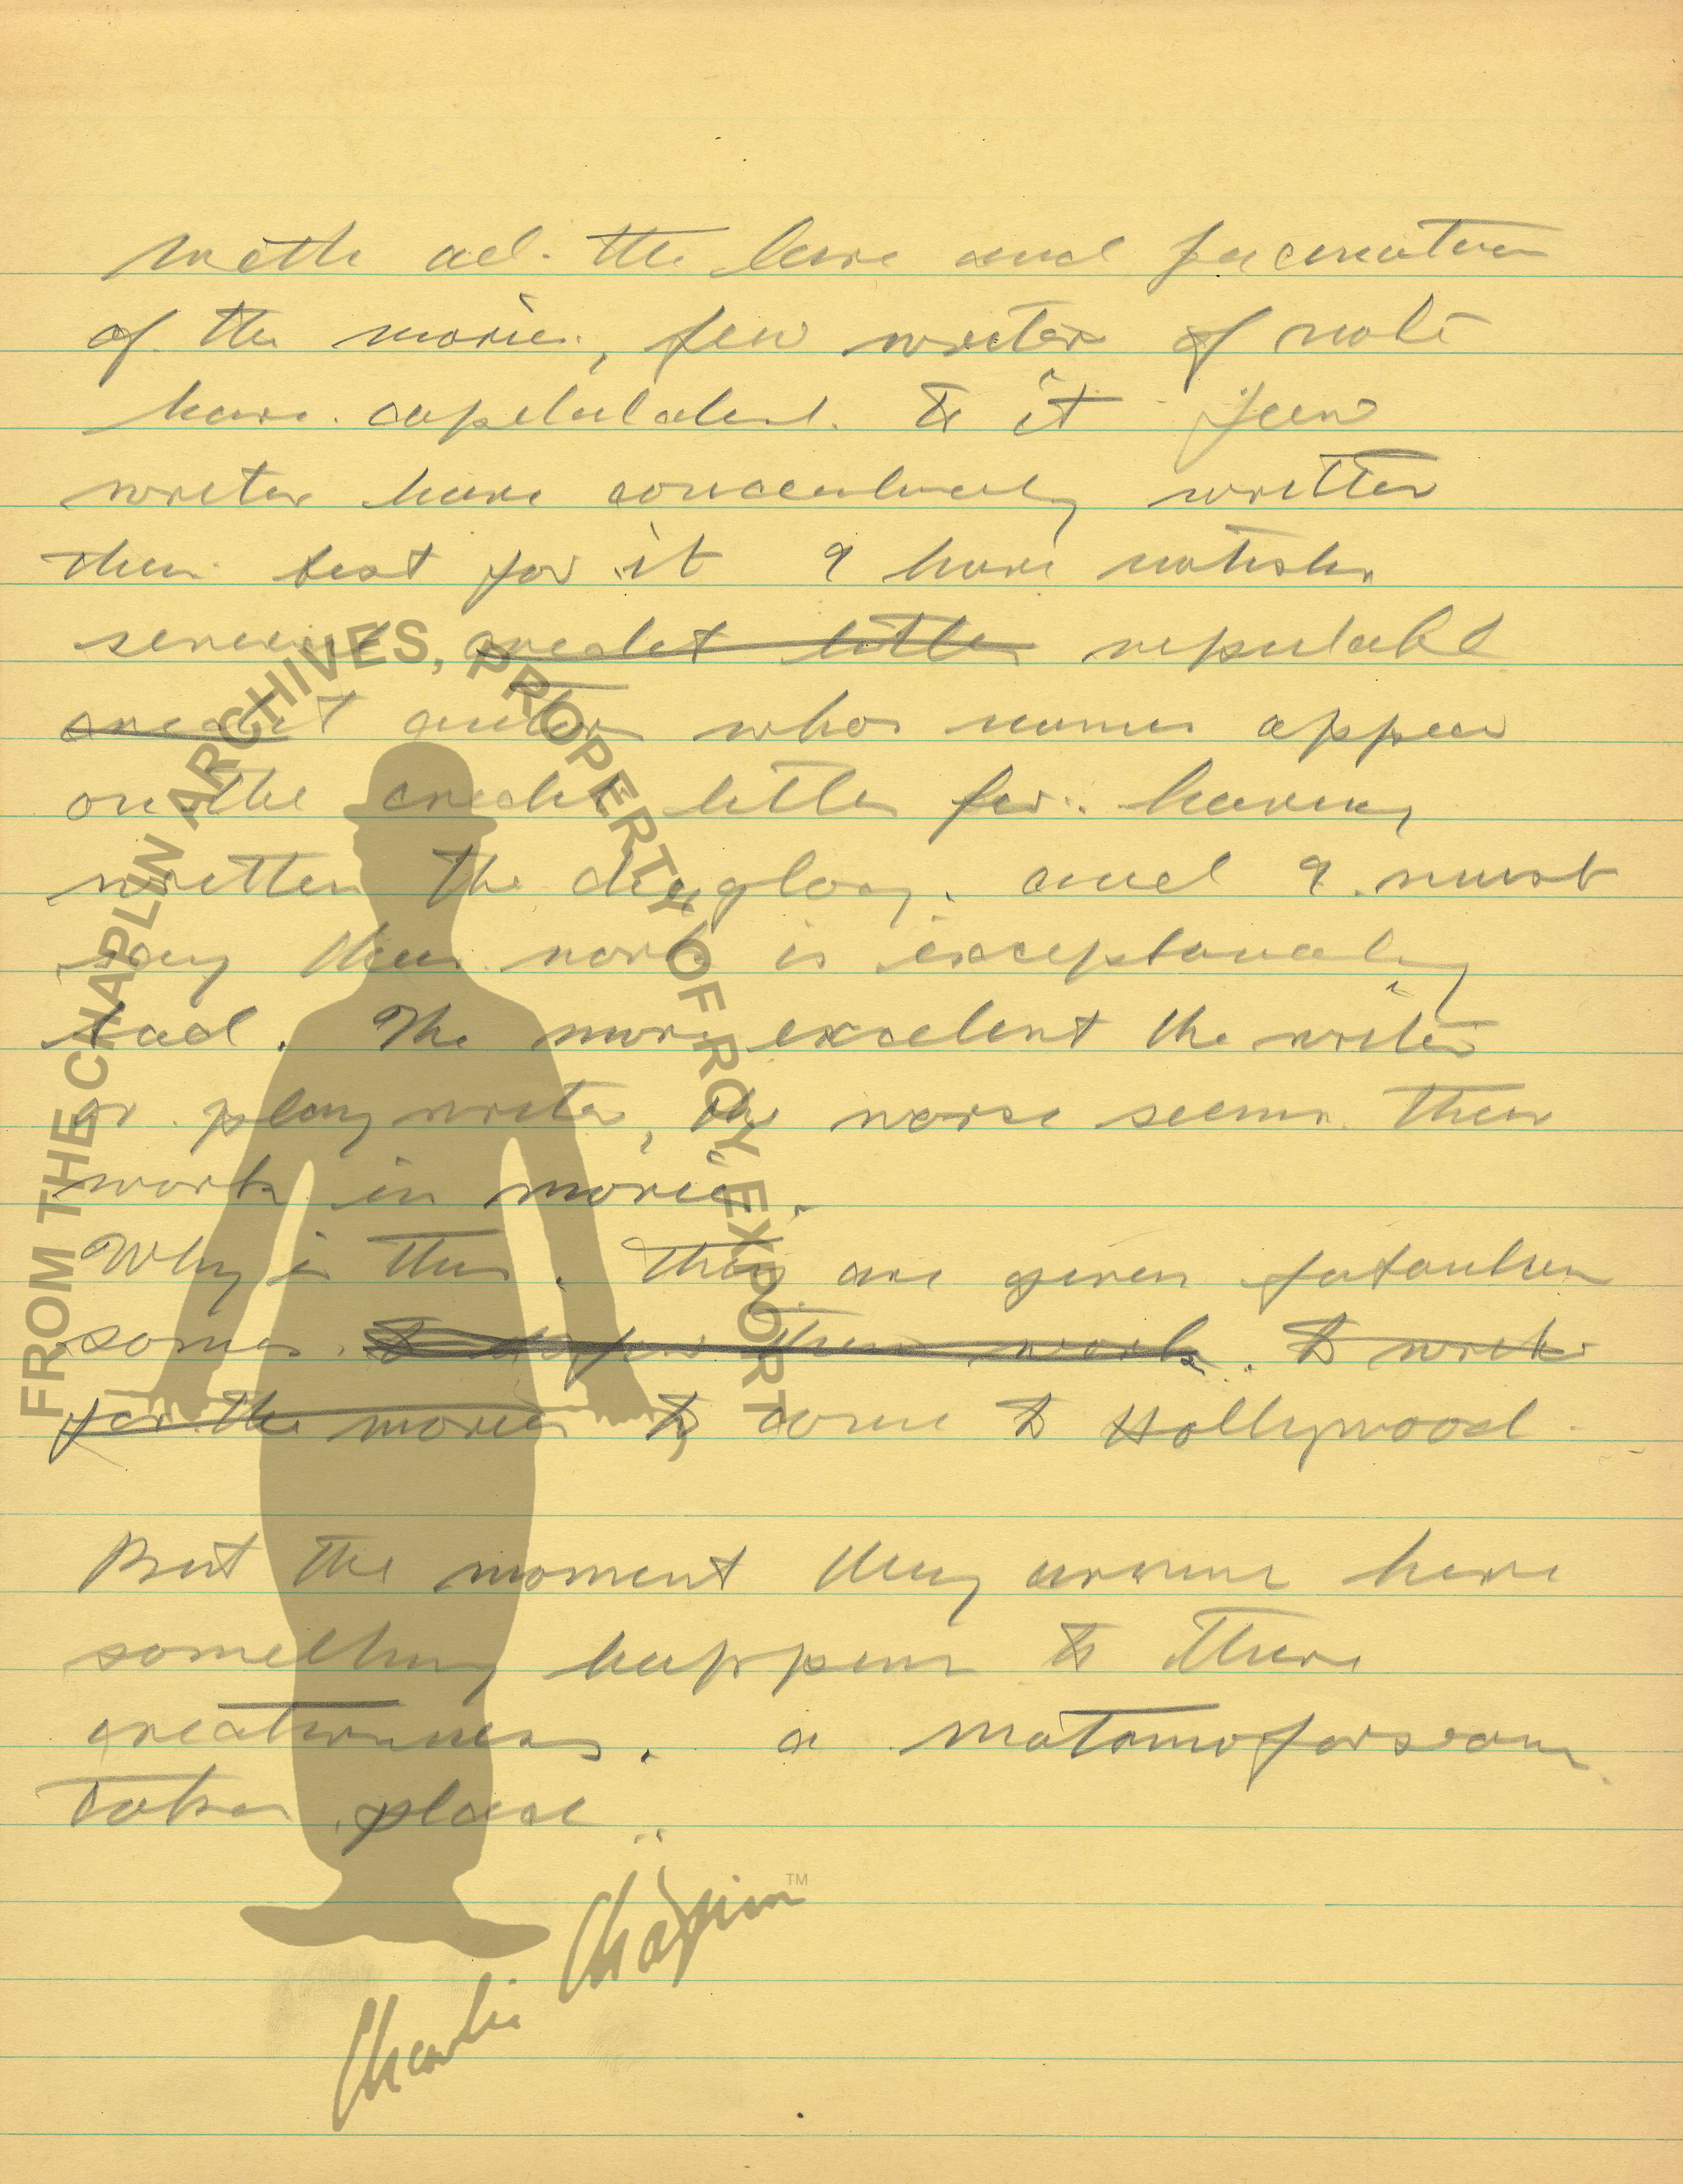 With all the lure and facination
of the movies, few writers of note
have capitulated to it few
writers have concientiously written
their best for it I have notised
several credit titles reputable
credit autors whos names appear
on the credit titles for having
written the dyaglog. and I must
say their work is exceptionaly
bad. The more excelent the writer
or play writer, the worse seems their
work in movies.
Why is this. They are given
somes. to their work. to write
for the movies to come to Hollywood.
But the moment they arrive here
something happens to there
creativeness. a
takes place..
FROM THE CHAPLIN ARCHIVES, PROPERTY OF ROY EXPORT
Charlie Chaplin™